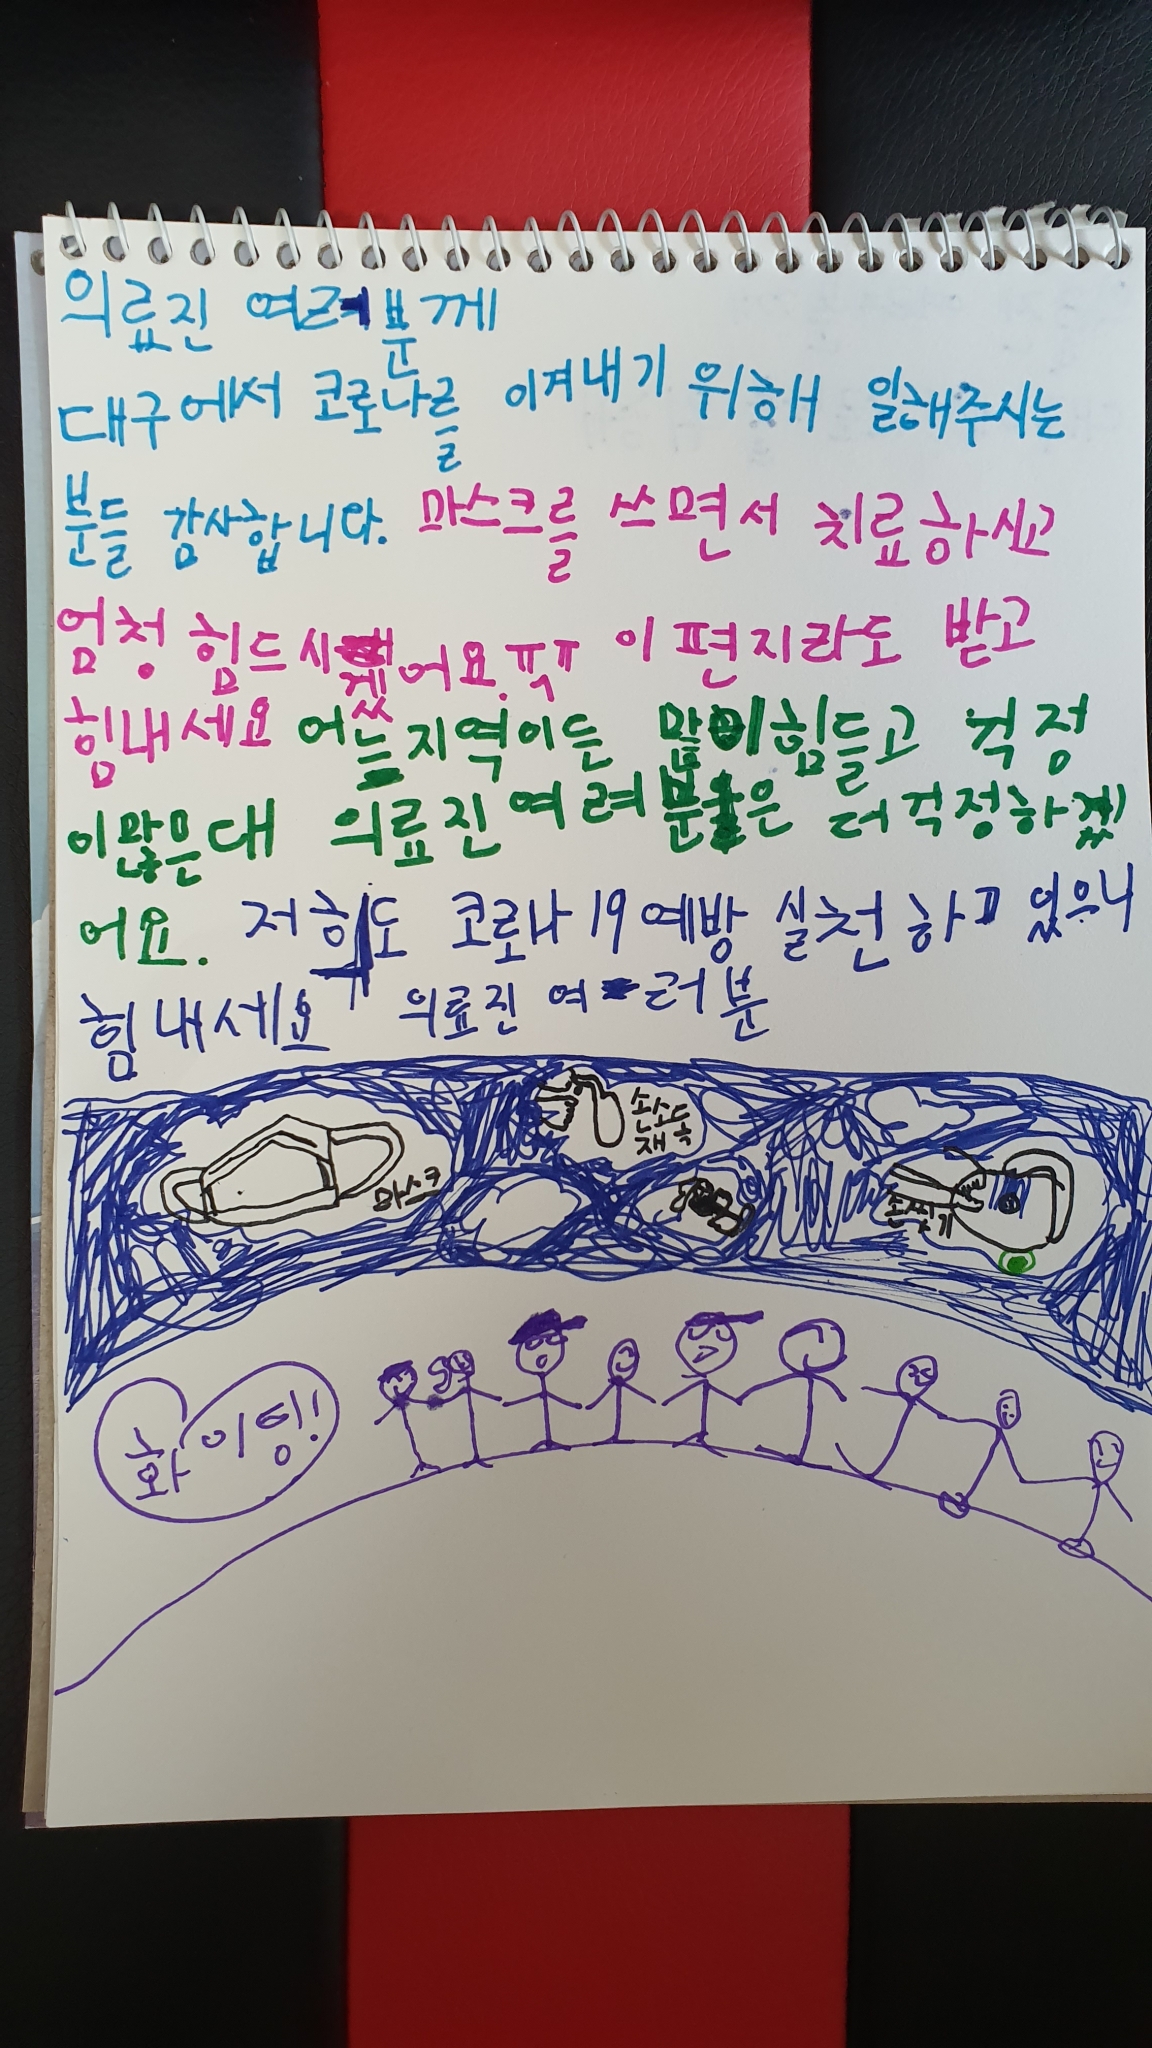 의료진 여러분께
대구에서 코로나를 이겨내기 위해 일해주시는
분들 감사합니다. 마스크를 쓰면서 치료하시고
엄청 힘드시겠어요. ㅠㅠ 이 편지라도 받고
힘내세요 어느지역이든 많이힘들고 걱정
이많은대 의료진 여려분은 더걱정하겠
어요. 저희도 코로나19예방 실천하고 있으니
힘내세요 의료진 여러분
손소독
재
마스크
손씻기
화이팅!